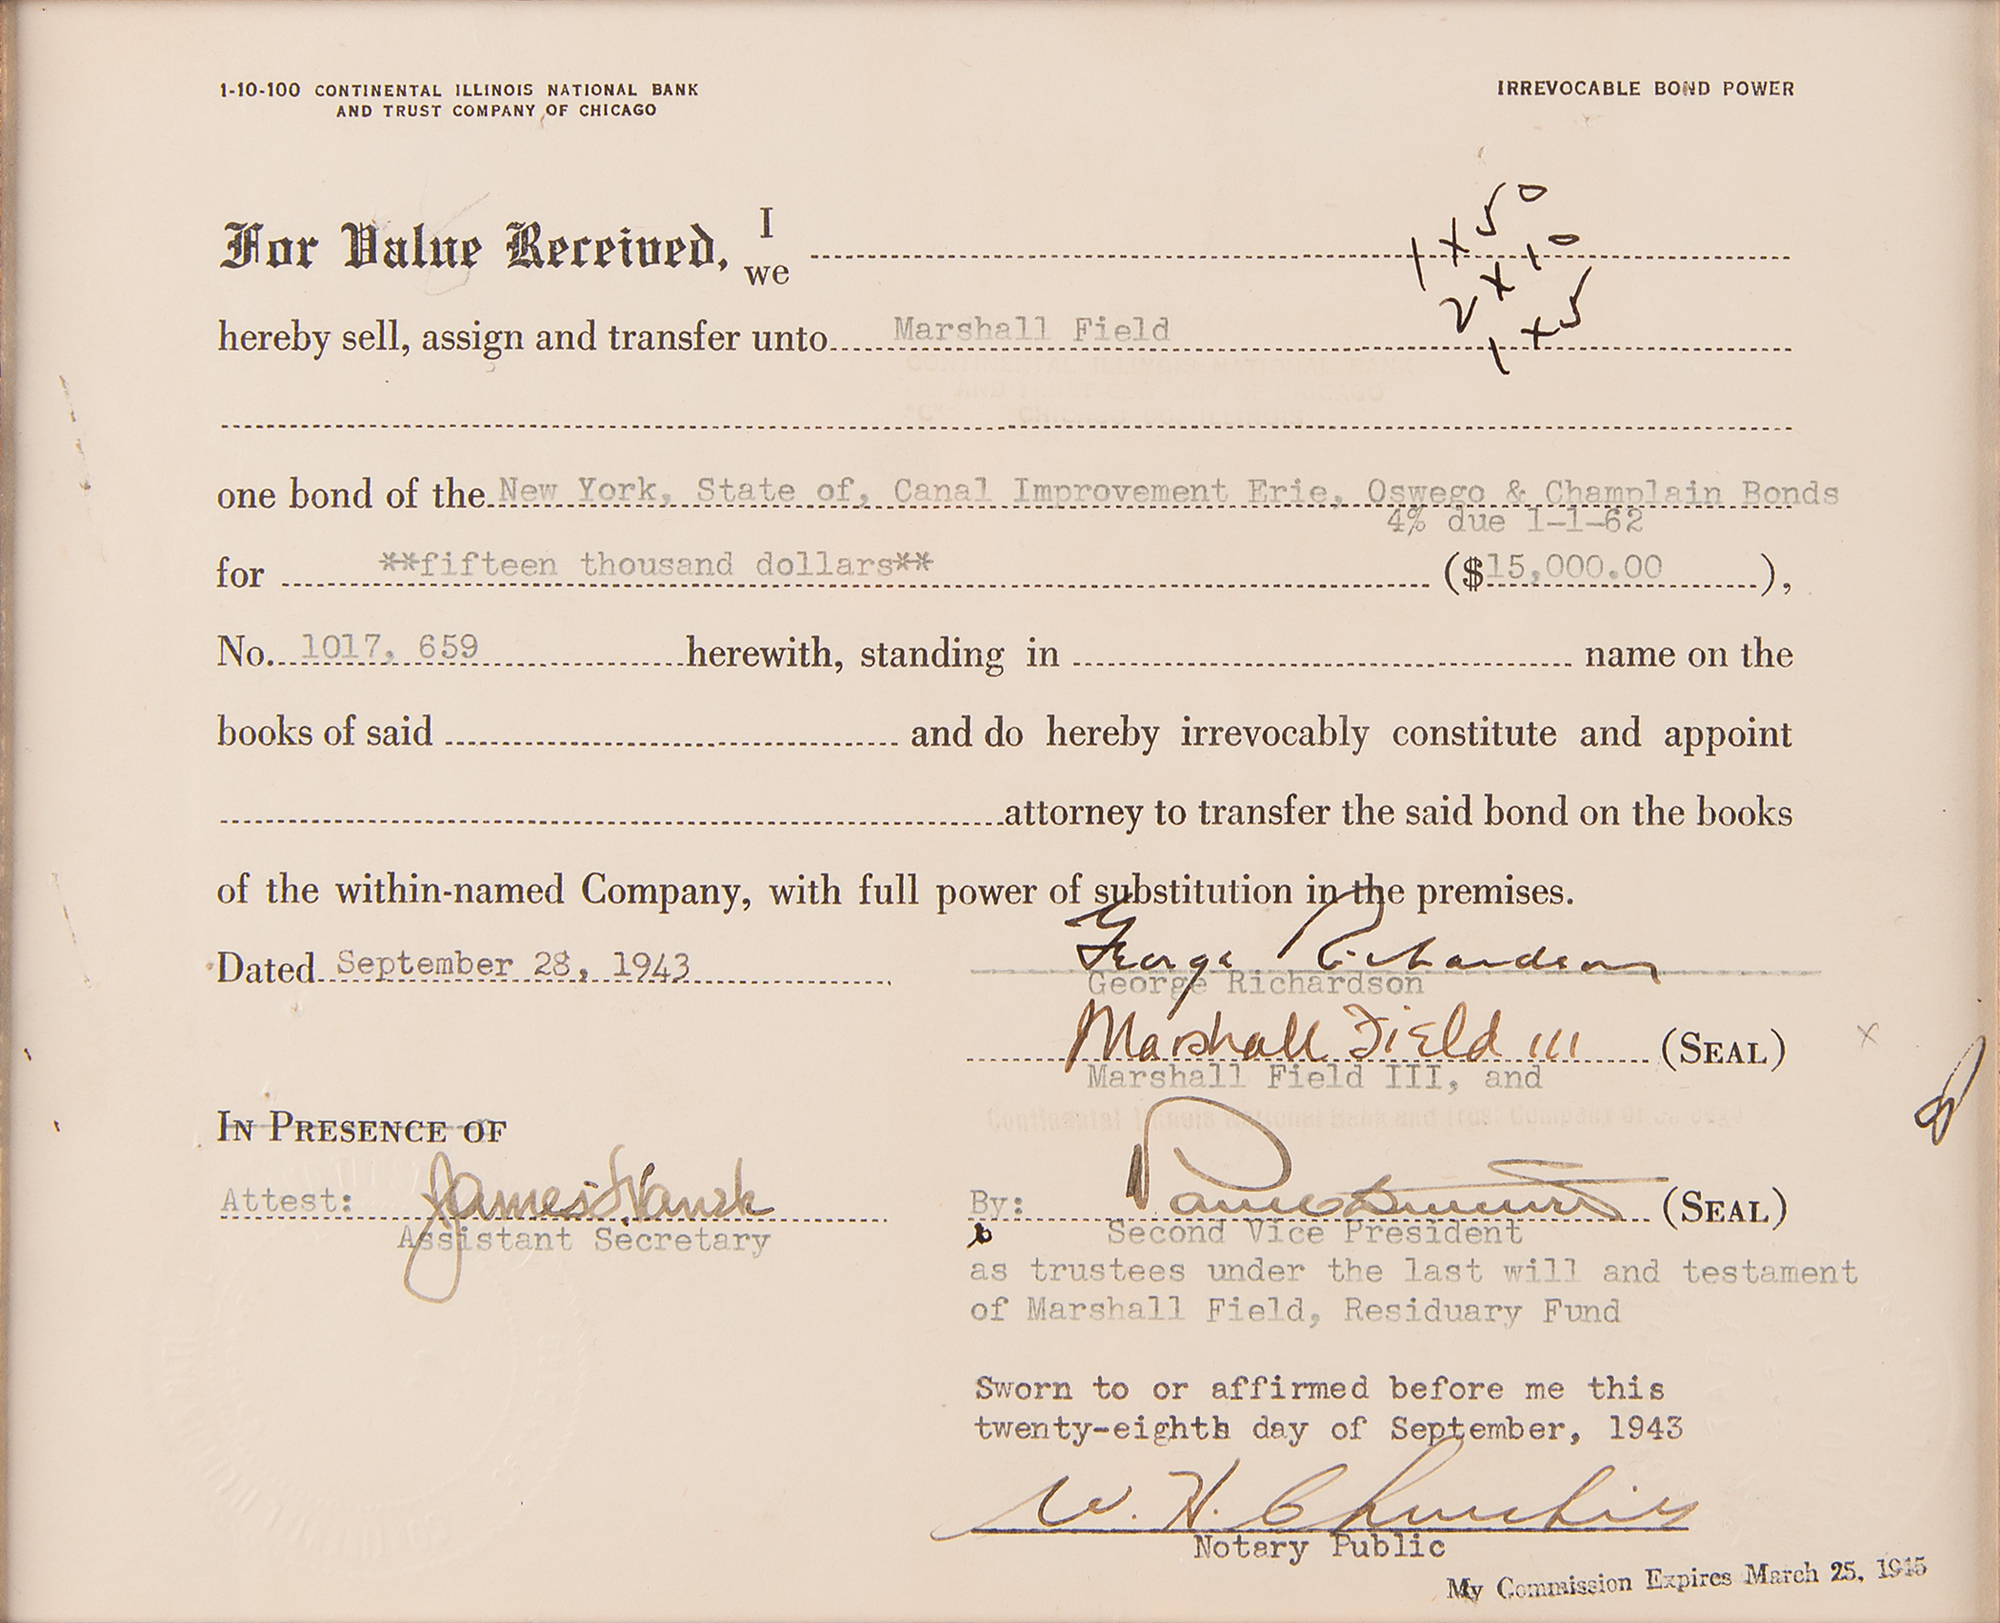 1-10-100 CONTINENTAL ILLINOIS NATIONAL BANK
AND TRUST COMPANY OF CHICAGO
IRREVOCABLE BOND POWER
1 x 50
2 x 10
1 x 5
For Value Received, I
we
hereby sell, assign and transfer unto Marshall Field
CONTINENTAL ILLINOIS NATIONAL BANK
AND TRUST COMPANY OF CHICAGO
one bond of the New York, State of, Canal Improvement Erie, Oswego & Champlain Bonds
4% due 1-1-62
for **fifteen thousand dollars** ($15,000.00),
No. 1017, 659 herewith, standing in name on the
books of said and do hereby irrevocably constitute and appoint
attorney to transfer the said bond on the books
of the within-named Company, with full power of substitution in the premises.
Dated September 28, 1943
George Richardson
George Richardson
Marshall Field III (SEAL)
Marshall Field III, and
Continental Illinois National Bank and Trust Company of Chicago
IN PRESENCE OF
Attest: James
Assistant Secretary
By: (SEAL)
Second Vice President
as trustees under the last will and testament
of Marshall Field, Residuary Fund
Sworn to or affirmed before me this
twenty-eighth day of September, 1943
W. H. Churchill
Notary Public
My Commission Expires March 25, 1945